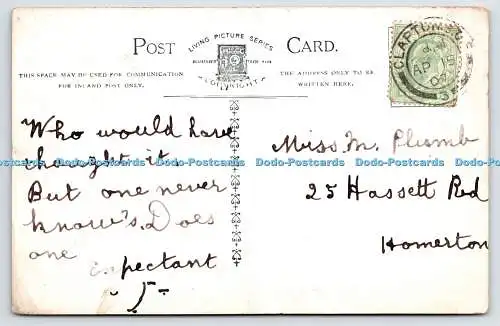 POST CARD.
LIVING PICTURE SERIES
COPYRIGHT
THIS SPACE MAY BE USED FOR COMMUNICATION
FOR INLAND POST ONLY.
THE ADDRESS ONLY TO BE
WRITTEN HERE.
CLAPTON S.O.
AP
Who would have
thought it.
But one never
know's. Does
one
expectant
Miss. M. Plumb
25 Hassett Rd
Homerton
Dodo-Postcards Dodo-Postcards Dodo-Postcards Dodo-Postcards Dodo-Postcards